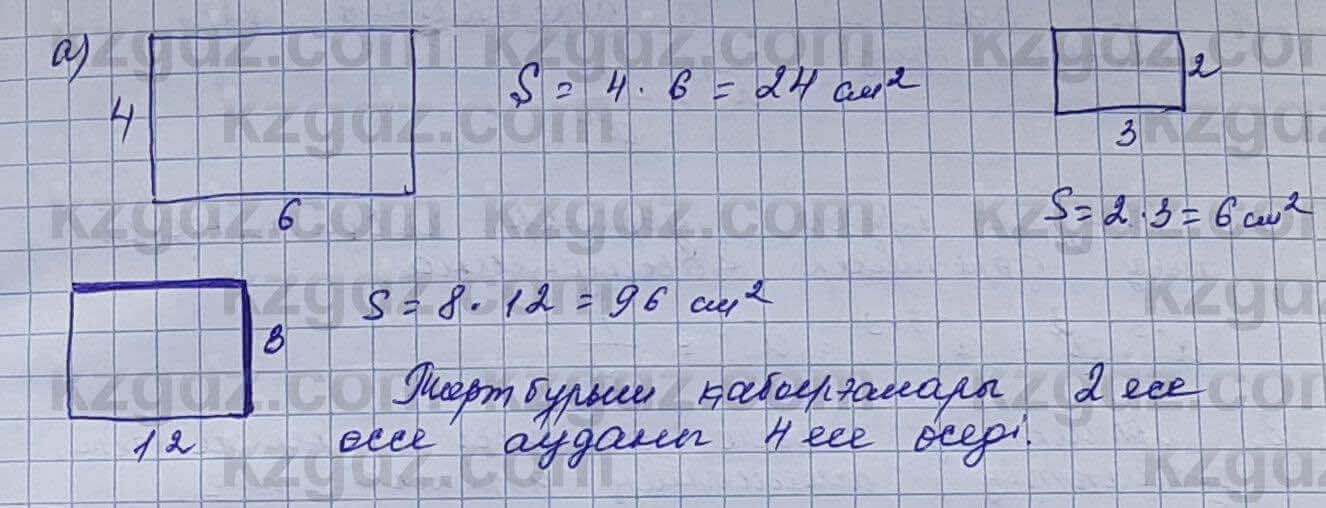 а)
4
6
S = 4 · 6 = 24 см²
2
3
S = 2 · 3 = 6 см²
8
12
S = 8 · 12 = 96 см²
Төртбұрыш қабырғалары 2 есе
өссе ауданы 4 есе өседі.
kzgdz.com